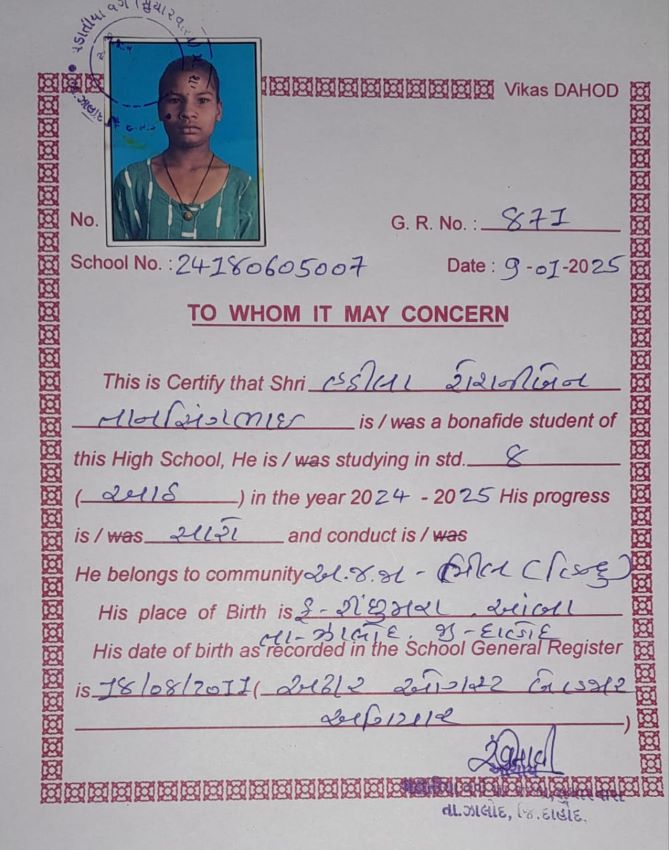 Vikas DAHOD
No.
G. R. No. : 871
School No. : 24180605007
Date : 9-01-2025
TO WHOM IT MAY CONCERN
This is Certify that Shri
is / was a bonafide student of
this High School, He is / was studying in std. 8
( આઠ ) in the year 2024 - 2025 His progress
is / was સારો and conduct is / was
He belongs to community અ.જ.જા - ભીલ (હિન્દુ)
His place of Birth is
તા-ઝાલોદ. જી-દાહોદ
His date of birth as recorded in the School General Register
is 18/08/2011 ( અઢાર ઓગસ્ટ બે હજાર
અગિયાર )
આચાર્ય
તા.ઝાલોદ, જિ.દાહોદ.